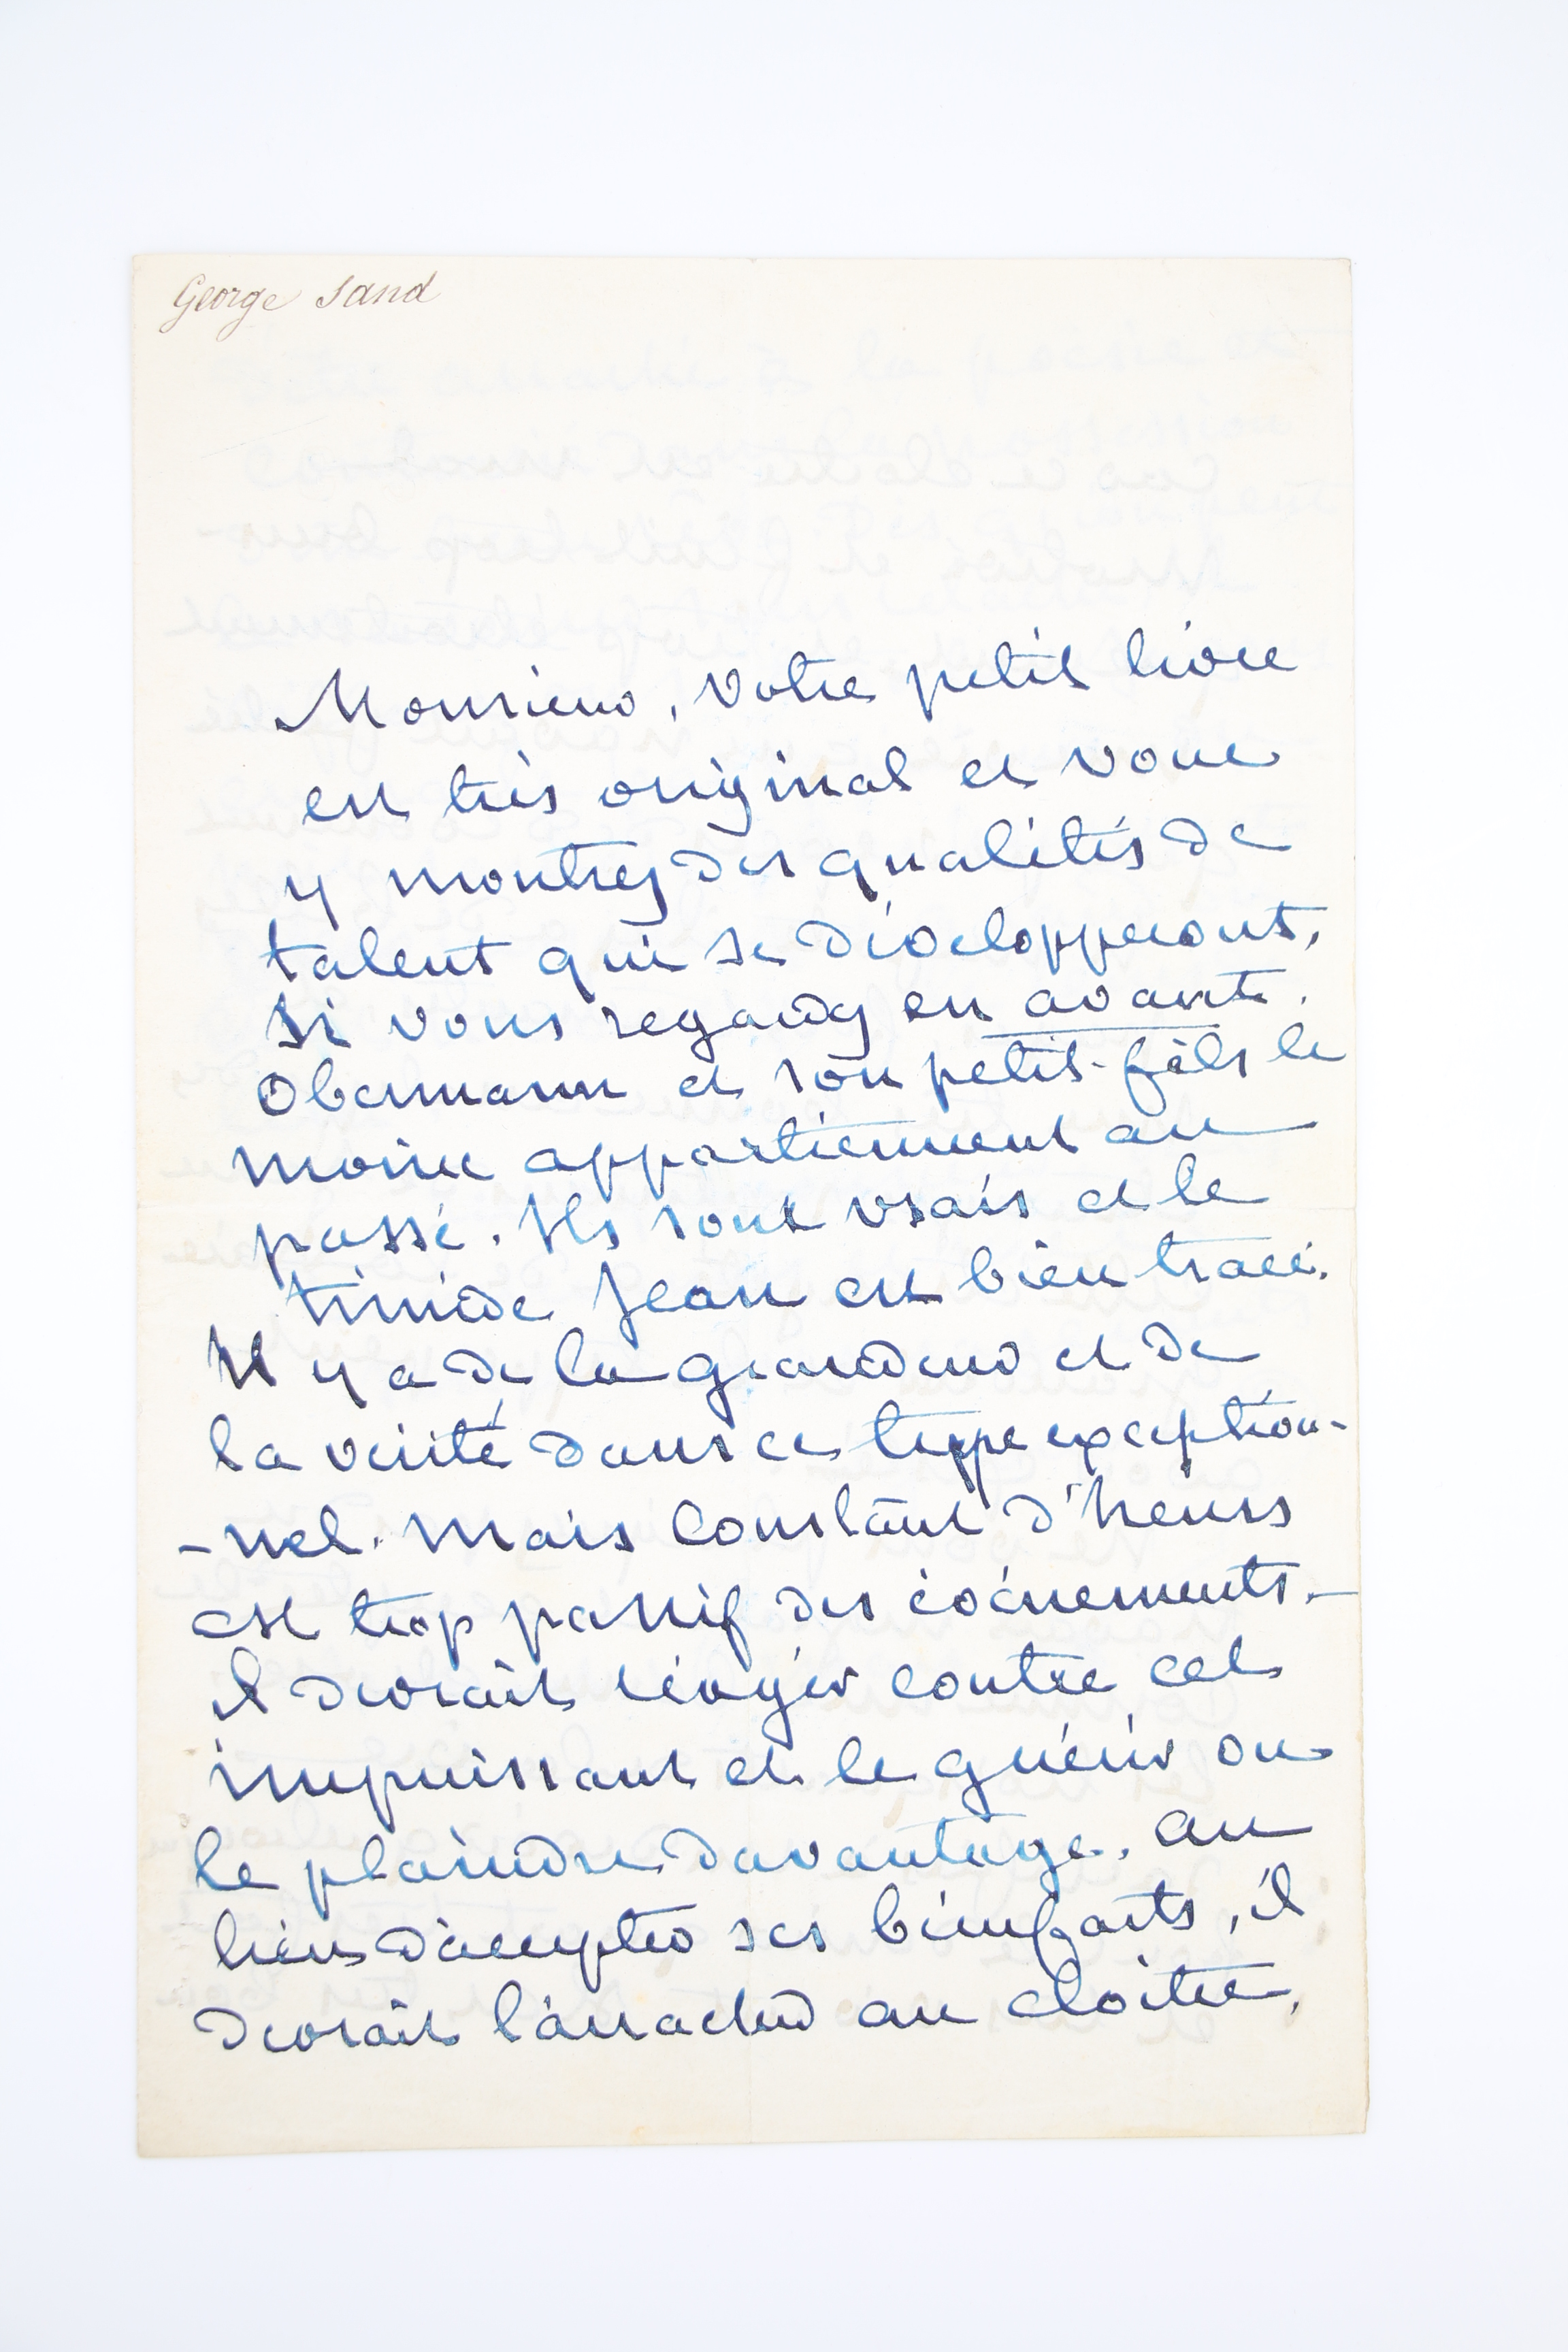 George Sand
Monsieur, votre petit livre
est très original et vous
y montrez des qualités de
talent qui se développeront,
si vous regardez en avant.
Obermann et son petit-fils le
moine appartiennent au
passé. Ils sont vrais et le
timide Jean est bien tracé.
Il y a de la grandeur et de
la vérité dans ce type exception-
-nel. Mais Constant d'heurs
est trop passif des évènements.
il devrait réagir contre cet
impuissant et le guérir ou
le plaindre davantage. au
lieu d'accepter ses bienfaits, il
devrait l'arracher au cloitre,